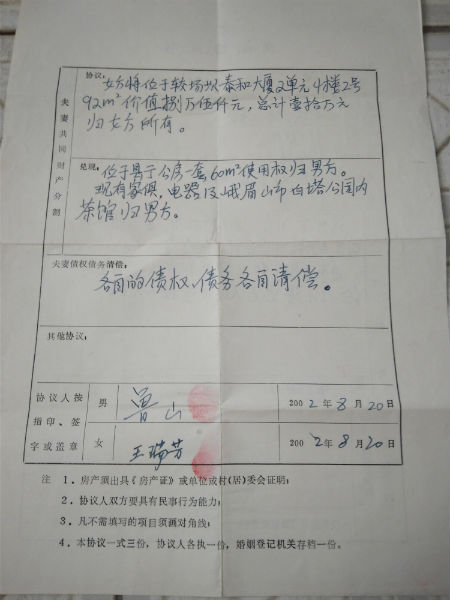 夫妻共同财产分割
协议:女方将位于较场坝泰和大厦2单元4楼2号
92m²价值捌万伍仟元,总计壹拾万元
归女方所有。
兑现:位于县宁公房一套60m²使用权归男方。
现有家俱,电器及峨眉山市白塔公园内
茶馆归男方。
夫妻债权债务清偿:
各自的债权、债务各自清偿。
其他协议:
协议人按指印、签字或盖章
男 鲁山 2002年8月20日
女 王瑞芳 2002年8月20日
注 1.房产须出具《房产证》或单位或村(居)委会证明;
2.协议人双方要具有民事行为能力;
3.凡不需填写的项目须画对角线;
4.本协议一式三份,协议人各执一份,婚姻登记机关存档一份。